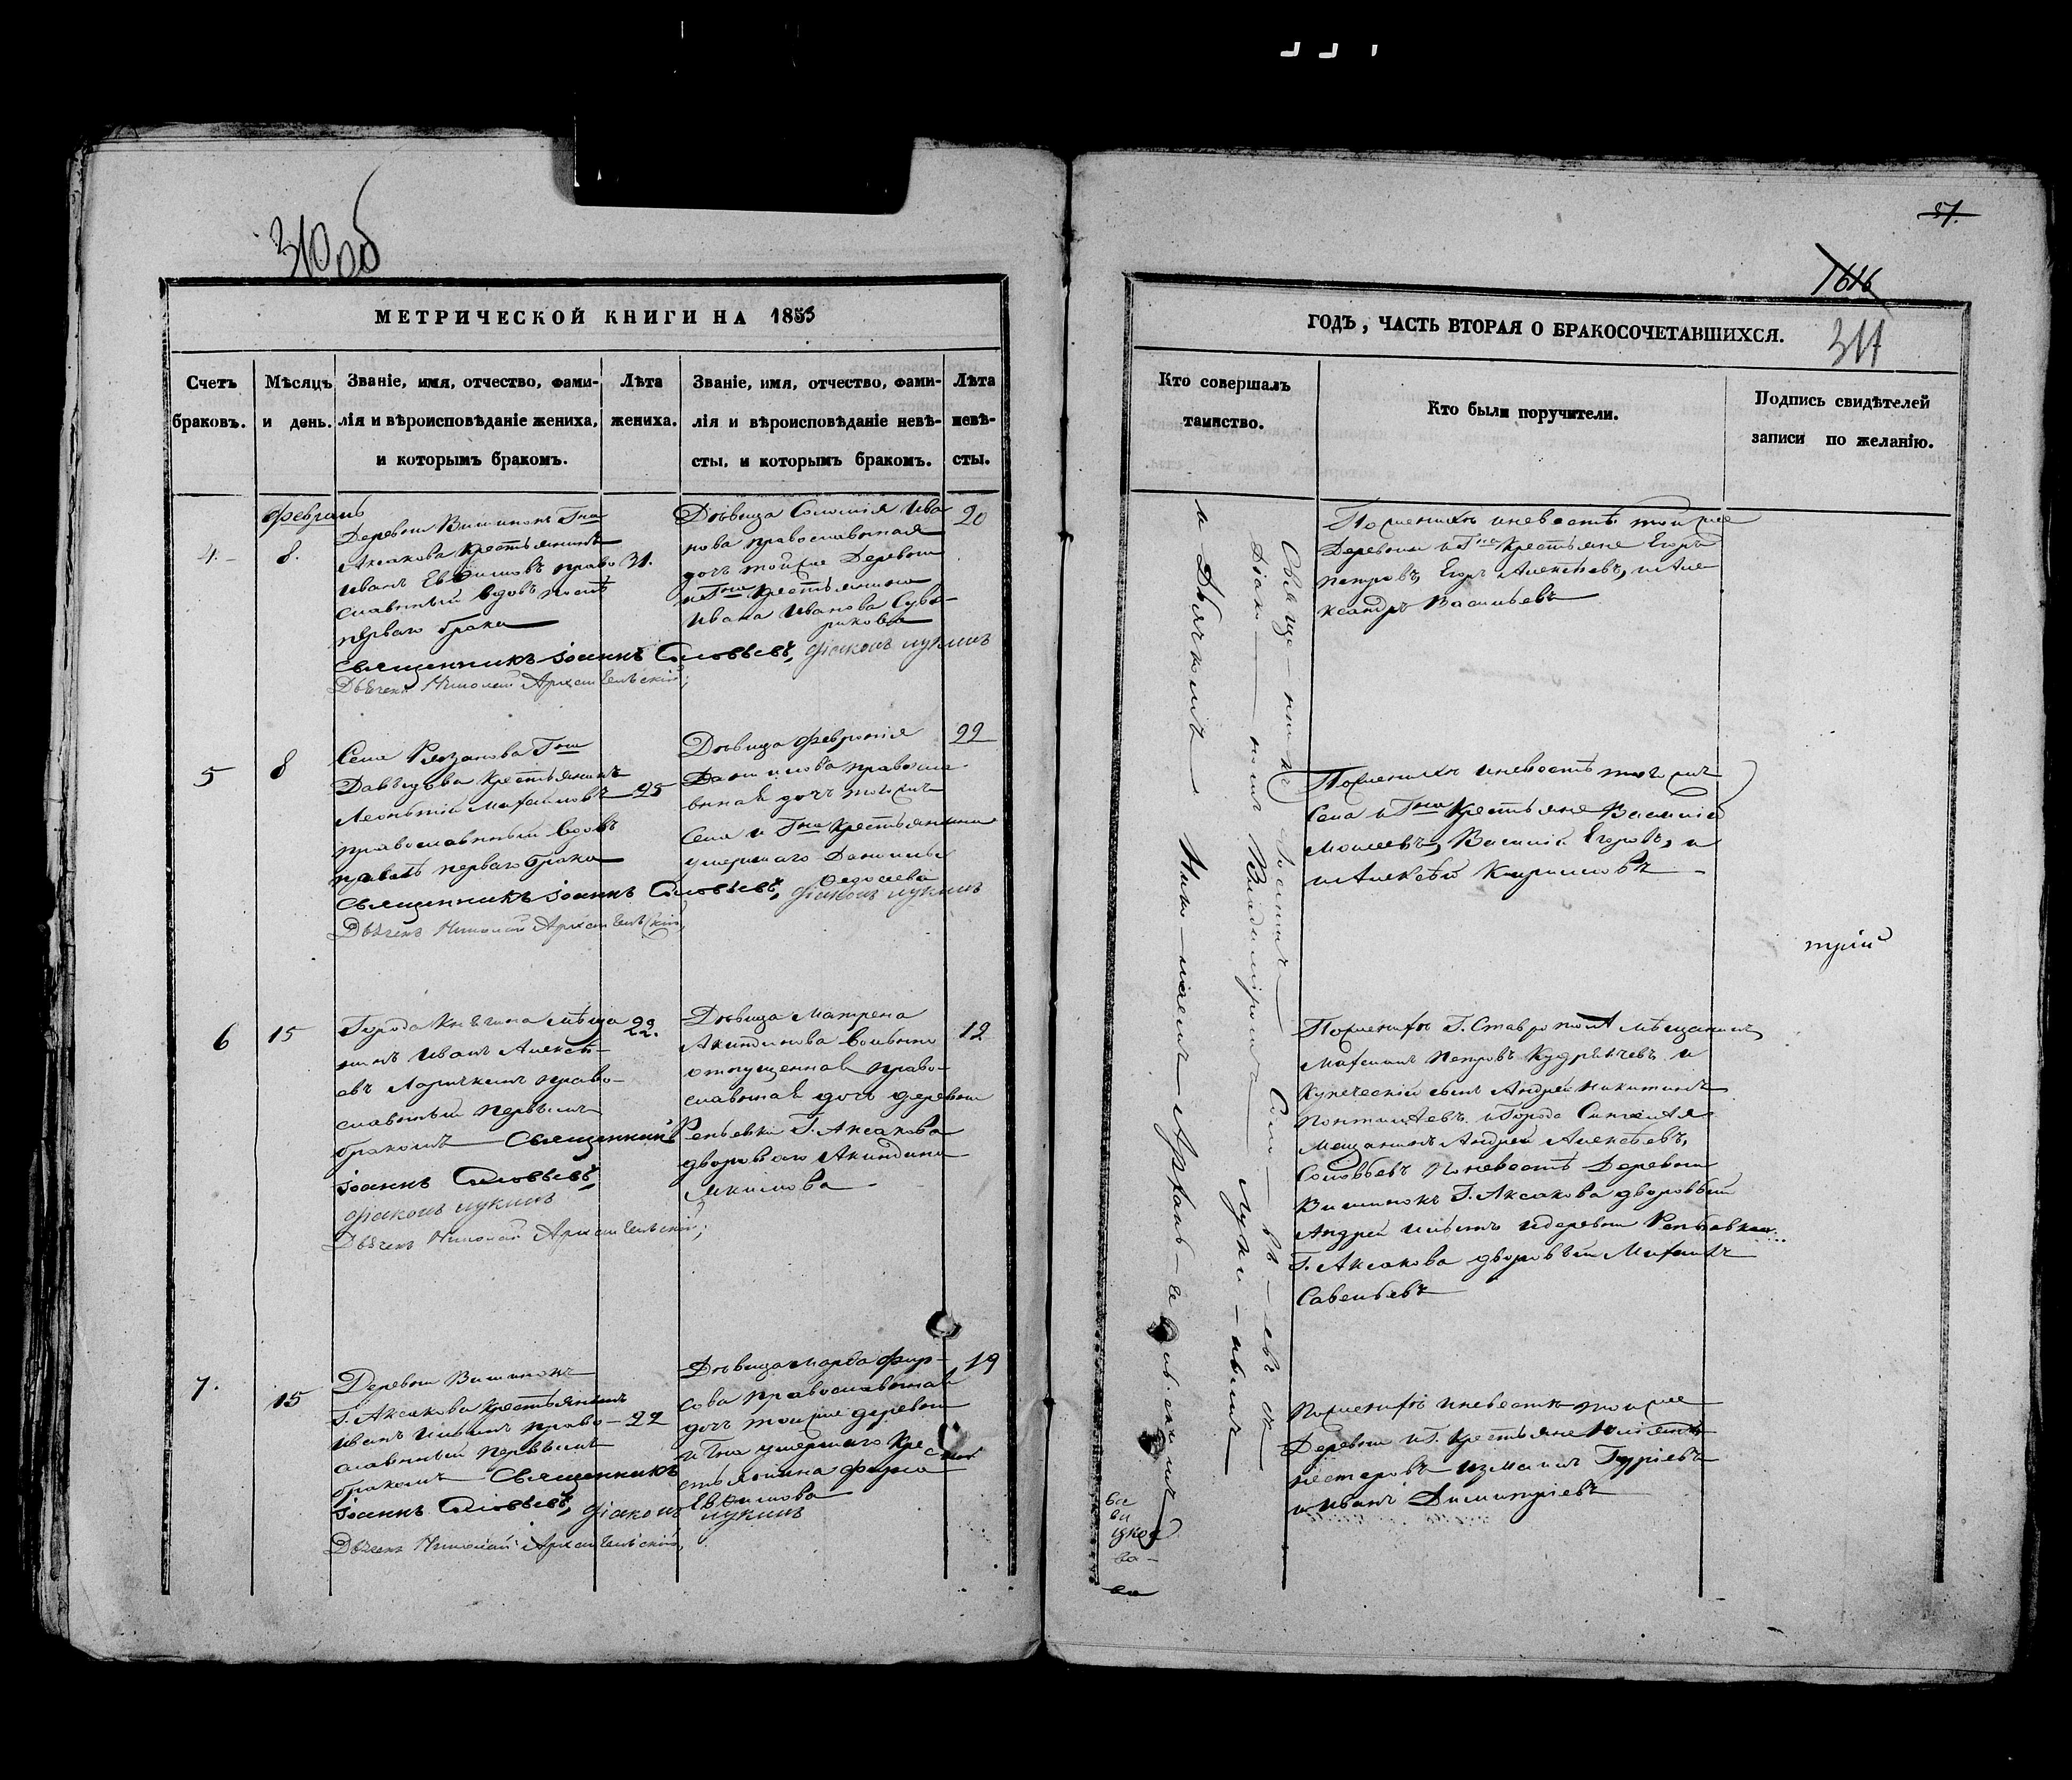 310 об
МЕТРИЧЕСКОЙ КНИГИ НА 1853
Счетъ браковъ.
Мѣсяцъ и день.
Званіе, имя, отчество, фами-
лія и вѣроисповѣданіе жениха,
и которымъ бракомъ.
Лѣта жениха.
Званіе, имя, отчество, фами-
лія и вѣроисповѣданіе невѣ-
сты, и которымъ бракомъ.
Лѣта
невѣ-
сты.
4.
Февраль
8.
Деревни Вишнокъ Гна
Аксакова крестьянинъ
Иванъ Евѳимовъ право
славный вдовъ послѣ
перваго брака
31.
Дѣвица Соломія Ива
нова православная
дочь тойже Деревни
и Гна крестьянина
Ивана Иванова Суво-
рикова
20
Священникъ Іоаннъ Соловьевъ, Діаконъ Лукинъ
Дьячекъ Николай Архангельскій;
5
8
Села Рязанова Гна
Давыдова крестьянинъ
Леонтій Михайловъ
православный вдовъ
послѣ перваго брака
25
Дѣвица Феронія
Данилова правосла
вная дочь тогожъ
Села и Гна крестьянина
умершаго Данилы
Ѳедосеева
22
Священникъ Іоаннъ Соловьевъ, Діаконъ Лукинъ
Дьячекъ Николай Архангельскій;
6
15
Города Княгина мѣща
нинъ Иванъ Алексѣ-
евъ Ларичкинъ право-
славный первымъ
бракомъ Священникъ
Іоаннъ Соловьевъ,
Діаконъ Лукинъ
Дьячекъ Николай Архангельскій;
22.
Дѣвица Матрена
Акиндинова вольно
отпущенная право-
славная дочь деревни
Репьевки Г. Аксакова
двороваго Акиндина
Якимова
19
7.
15
Деревни Вишнокъ
Г. Аксакова крестьянинъ
Иванъ Ильинъ право-
славный первымъ
бракомъ Священникъ
Іоаннъ Соловьевъ, Діаконъ Лукинъ
Дьячекъ Николай Архангельскій;
22
Дѣвица Марѳа Фир-
сова православная
дочь тойже деревни
и Гна умершаго кре
стьянина Фирса
Евѳимова
19
51.
1616
311
ГОДЪ, ЧАСТЬ ВТОРАЯ О БРАКОСОЧЕТАВШИХСЯ.
Кто совершалъ
таинство.
Кто были поручители.
Подпись свидѣтелей
записи по желанію.
Свяще — нникъ Іоаннъ Соло — вь — евъ съ
Діако — номъ Владиміромъ Луки — нымъ
и Дьячкомъ Нико — лаемъ Архан — ге — льскимъ
По женихѣ и невестѣ тойже
Деревни и Гна крестьяне Егоръ
Петровъ, Егоръ Алексѣевъ, и Але
ксандръ Васильевъ
По женихѣ и невестѣ тогожъ
Села и Гна крестьяне Василій
Моисеевъ, Василій Егоровъ, и
и Алексѣй Кириловъ
По женихѣ Г. Ставрополя мѣщанинъ
Михаилъ Петровъ Кудрявчевъ и
купеческій сынъ Андрей Никитинъ
и Города Сингелія
мещанинъ Андрей Алексѣевъ,
Соловьевъ По невестѣ Деревни
Вишнокъ Г. Аксакова дворовый
Андрей Ильинъ и деревни Репьевки
Г. Аксакова дворовый Михаилъ
Савельевъ
По женихѣ и невестѣ тойже
Деревни и Г. крестьяне
Нестеровъ Измаилъ Гуріевъ
и Иванъ Димитріевъ